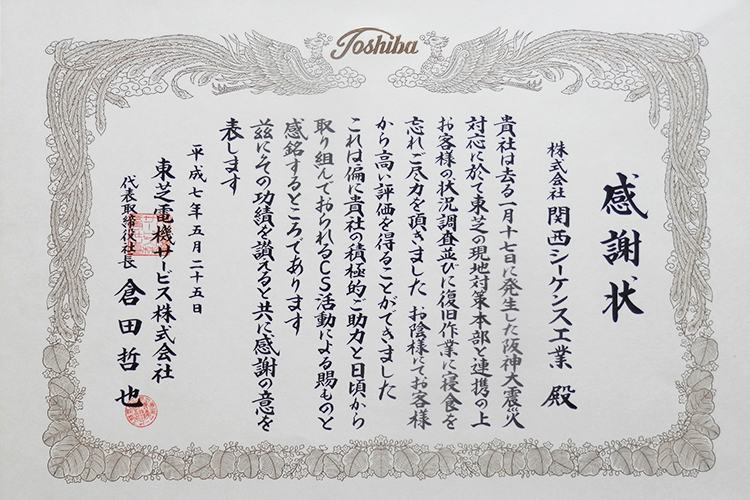 Toshiba
感謝状
株式会社 関西シーケンス工業 殿
貴社は去る一月十七日に発生した阪神大震災
対応に於て東芝の現地対策本部と連携の上
お客様の状況調査並びに復旧作業に寝食を
忘れご尽力を頂きました お陰様にてお客様
から高い評価を得ることができました
これは偏に貴社の積極的ご助力と日頃から
取り組んでおられるCS活動による賜ものと
感銘するところであります
茲にその功績を讃えると共に感謝の意を
表します
平成七年五月二十五日
東芝電機サービス株式会社
代表取締役社長 倉田哲也